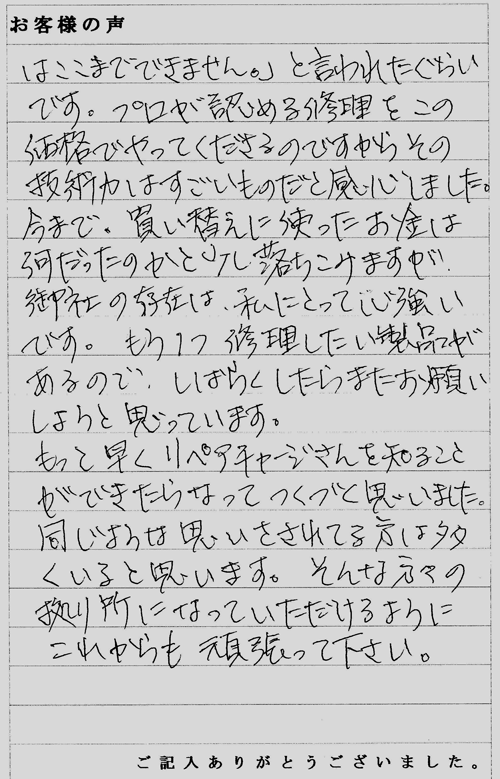 お客様の声
はここまでできません。」と言われたぐらい
です。プロが認める修理をこの
価格でやってくださるのですからその
技術力はすごいものだと感心しました。
今まで、買い替えに使ったお金は
何だったのかと少し落ちこみますが、
御社の存在は、私にとって心強い
です。もう1つ修理したい製品が
あるので、しばらくしたらまたお願い
しようと思っています。
もっと早くリペアチャージさんを知ること
ができたらなってつくづく思いました。
同じような思いをされてる方は多
くいると思います。そんな方々の
拠り所になっていただけるように
これからも頑張って下さい。
ご記入ありがとうございました。